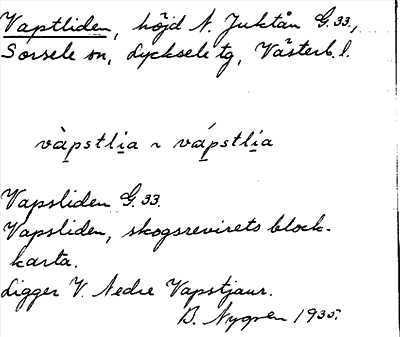 Vaptliden, höjd N. Juktån G.33.,
Sorsele sn, Lycksele tg, Västerb. l.
vàpstlia ~ vápstlia
Vapsliden G.33.
Vapsliden, skogsrevirets block-
karta.
Ligger V. Nedre Vapstjaur.
B. Nygren 1935.